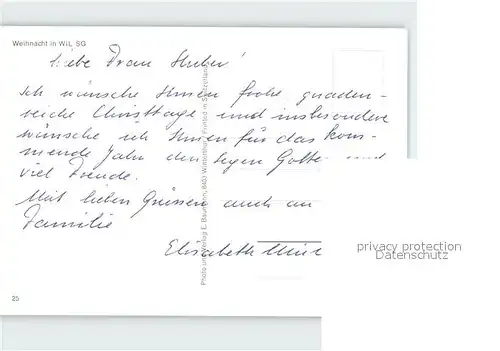 Weihnacht in WIL SG
Liebe Frau Huber!
Ich wünsche Ihnen frohe gnaden-
reiche Christtage und insbesondere
wünsche ich Ihnen für das kom-
mende Jahr den Segen Gottes und
viel Freude.
Mit lieben Grüssen auch an
Familie
Elisabeth
Photo und Verlag E. Baumann, 8401 Winterthur Printed in Switzerland
25
privacy protection
Datenschutz